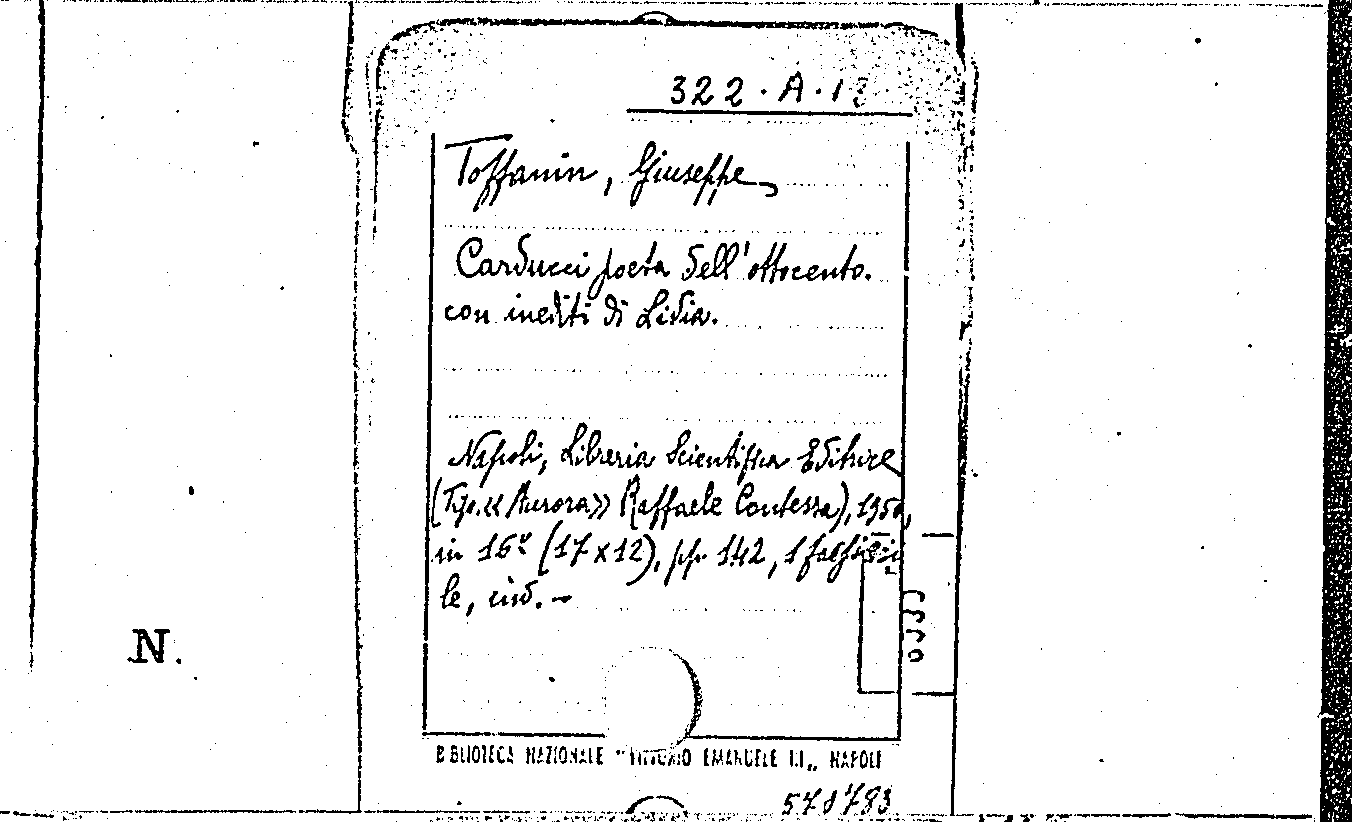 322 · A · 1
Toffanin, Giuseppe
Carducci poeta dell'ottocento.
con inediti di Lidia.
Napoli, Libreria Scientifica Editrice
(Tip. « Aurora » Raffaele Contessa), 1950,
in 16° (17 x 12), pp. 142, 1 facsimi
le, ind. –
N.
BIBLIOTECA NAZIONALE "VITTORIO EMANUELE III„ NAPOLI